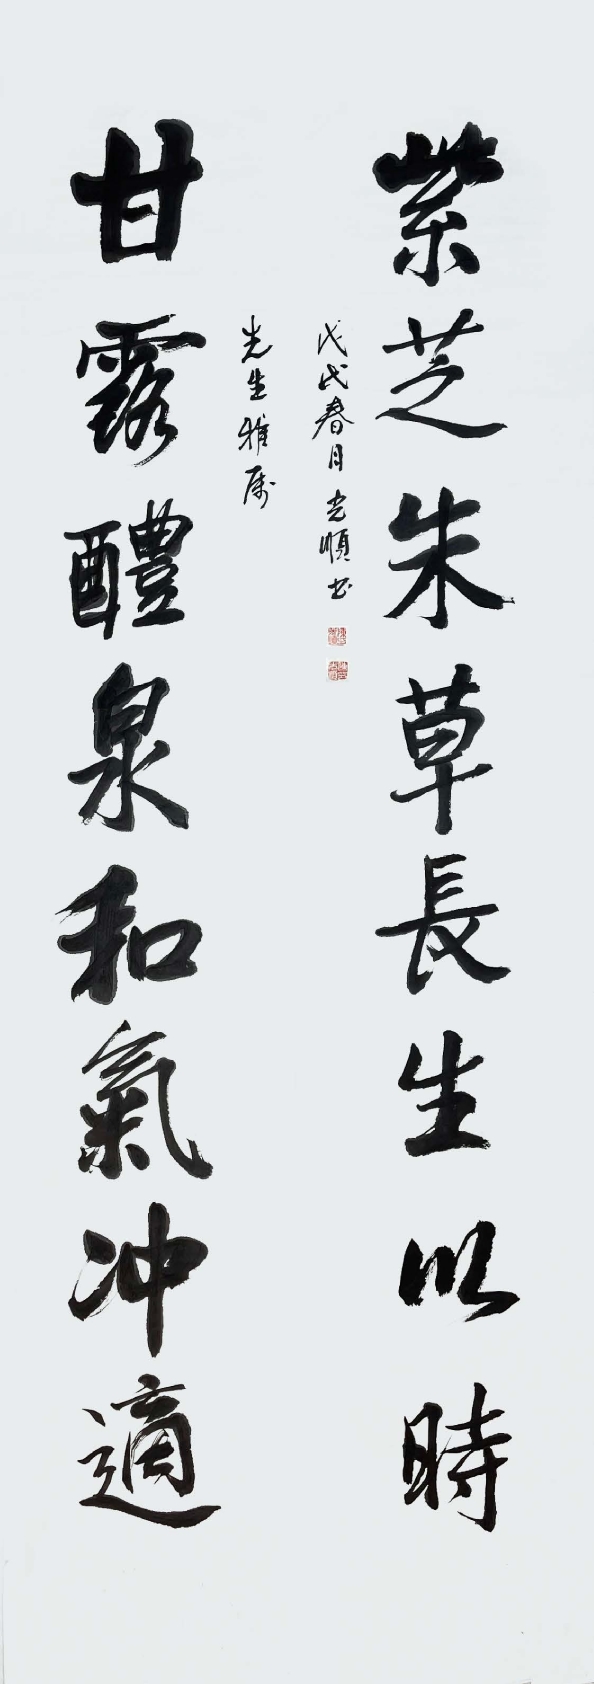 紫芝朱草長生以時
戊戌春月光順書
先生雅属
甘露醴泉和氣冲適